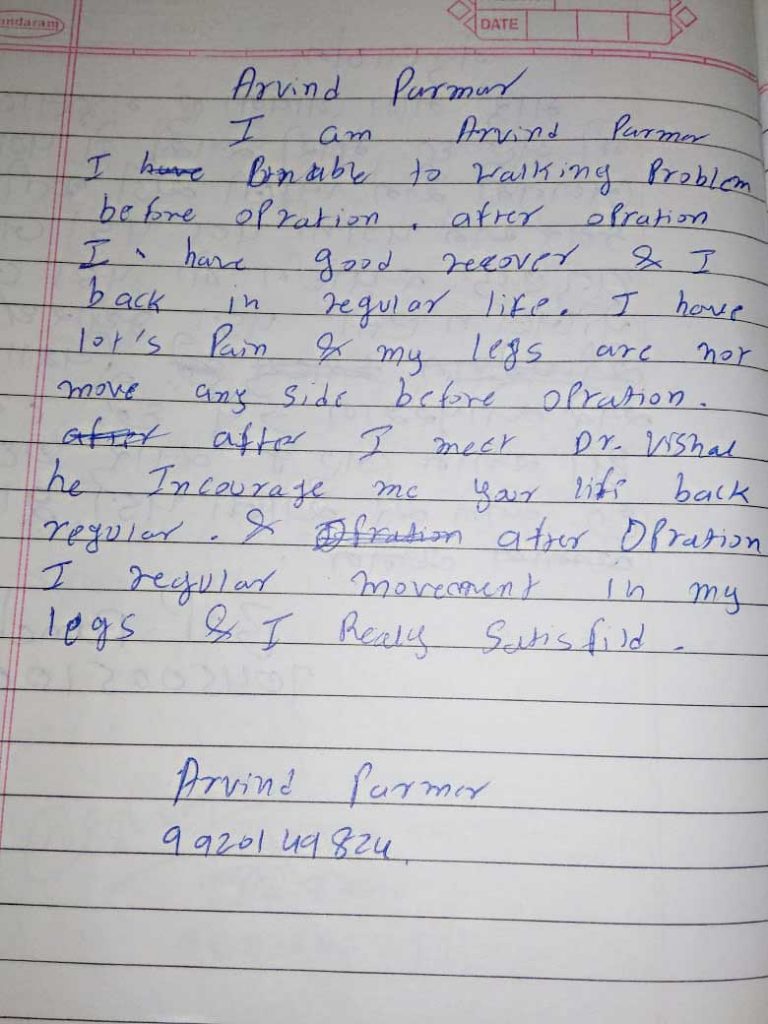 undaram
DATE
Arvind Parmar
I am Arvind Parmar
I have Unable to walking Problem
before opration. after opration
I have good recover & I
back in regular life. I have
lot's Pain & my legs are not
move any side before opration.
after after I meet Dr. Vishal
he Incourage me your life back
regular. & Opration after Opration
I regular movement in my
legs & I Realy Satisfild.
Arvind Parmar
9920149824